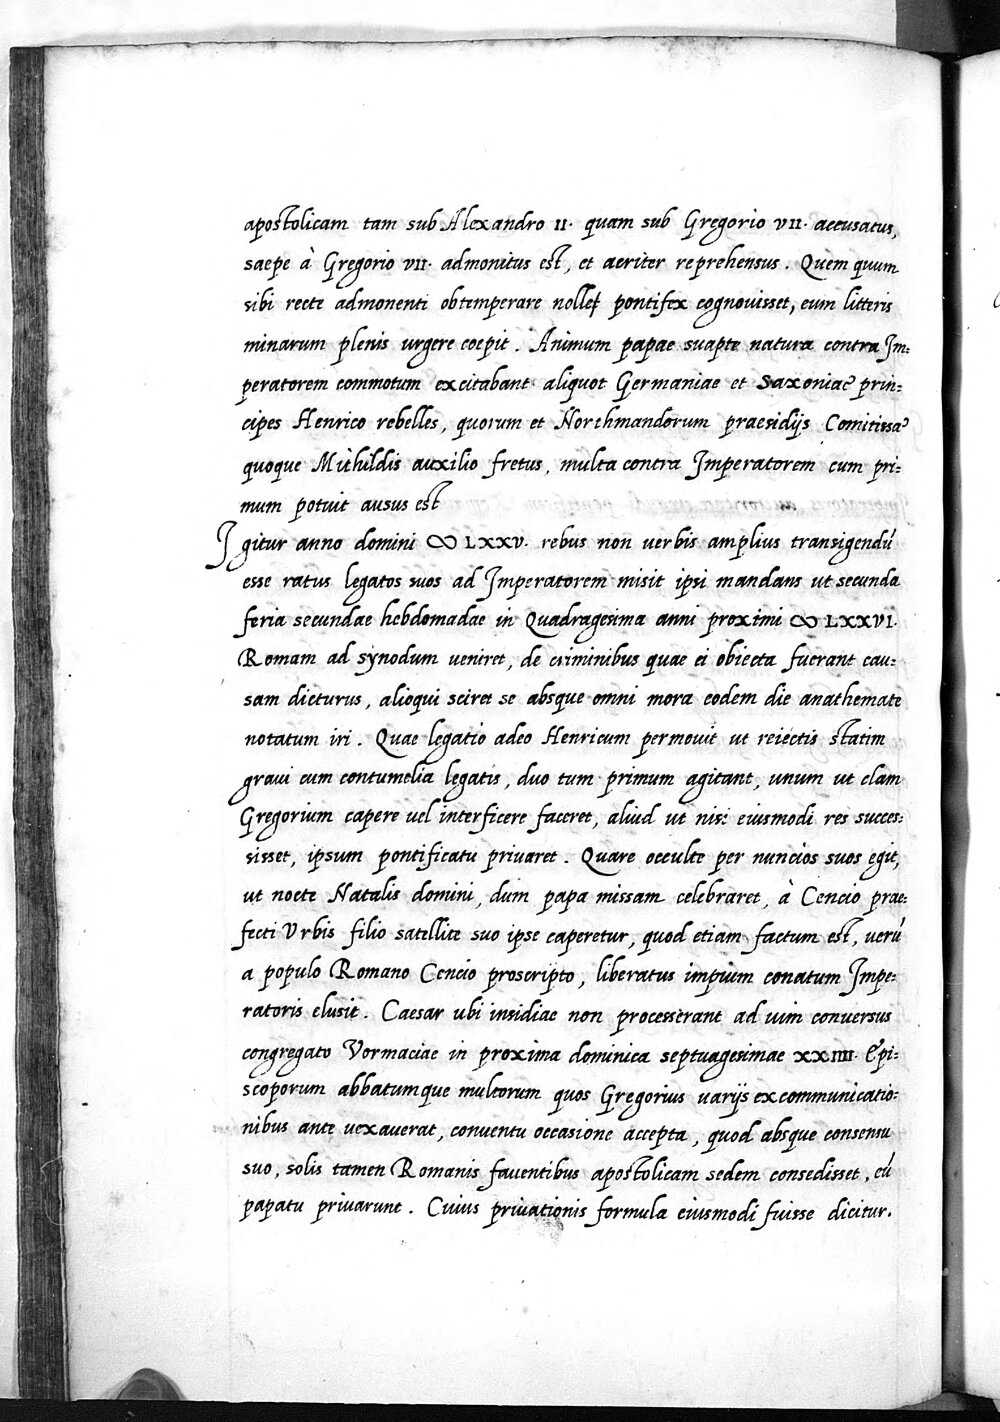 apostolicam tam sub Alexandro II. quam sub Gregorio VII. accusatus,
saepe à Gregorio VII. admonitus est, et acriter reprehensus. Quem quum
sibi recte admonenti obtemperare nollet pontifex cognouisset, eum litteris
minarum plenis urgere coepit. Animum papae suapte natura contra Im:
peratorem commotum excitabant aliquot Germaniae et Saxoniae prin:
cipes Henrico rebelles, quorum et Northmandorum praesidijs Comitissae
quoque Mithildis auxilio fretus, multa contra Imperatorem cum pri:
mum potuit ausus est
Igitur anno domini ∞ LXXV. rebus non uerbis amplius transigendú
esse ratus legatos suos ad Imperatorem misit ipsi mandans ut secunda
feria secundae hebdomadae in Quadragesima anni proximi ∞ LXXVI.
Romam ad synodum ueniret, de criminibus quae ei obiecta fuerant cau:
sam dicturus, alioqui sciret se absque omni mora eodem die anathemate
notatum iri. Quae legatio adeo Henricum permouit ut reiectis statim
graui cum contumelia legatis, duo tum primum agitant, unum ut clam
Gregorium capere uel interficere faceret, aliud ut nisi eiusmodi res succes:
sisset, ipsum pontificatu priuaret. Quare occulte per nuncios suos egit,
ut nocte Natalis domini, dum papa missam celebraret, à Cencio prae:
fecti Vrbis filio satellite suo ipse caperetur, quod etiam factum est, uerú
a populo Romano Cencio proscripto, liberatus impium conatum Impe:
ratoris elusit. Caesar ubi insidiae non processerant ad uim conuersus
congregato Vormaciae in proxima dominica septuagesimae XXIIII. Epi:
scoporum abbatumque multorum quos Gregorius uarijs excommunicatio:
nibus ante uexauerat, conuentu occasione accepta, quod absque consensu
suo, solis tamen Romanis fauentibus apostolicam sedem consedisset, eú
papatu priuarunt. Cuius priuationis formula eiusmodi fuisse dicitur.